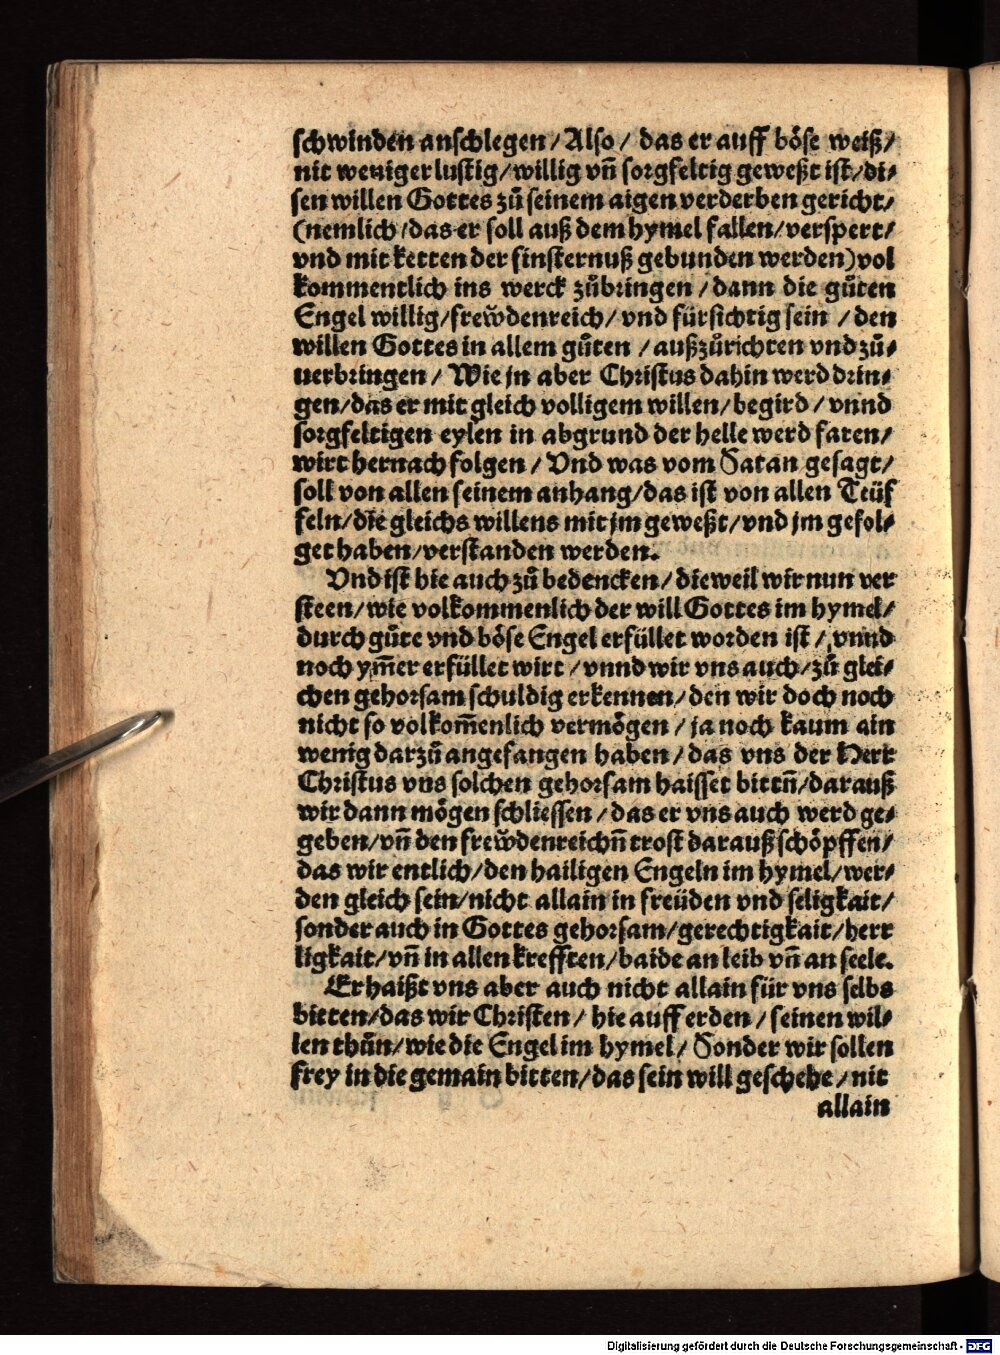 schwinden anschlegen / Also / das er auff böse weiß /
nit weniger lustig / willig vñ sorgfeltig geweßt ist / di⸗
sen willen Gottes zů seinem aigen verderben gericht /
(nemlich / das er soll auß dem hymel fallen / verspert /
vnd mit ketten der finsternuß gebunden werden) vol
kommentlich ins werck zůbringen / dann die gůten
Engel willig / frewdenreich / vnd fürsichtig sein / den
willen Gottes in allem gůten / außzůrichten vnd zů⸗
uerbringen / Wie jn aber Christus dahin werd drin⸗
gen / das er mit gleich volligem willen / begird / vnnd
sorgfeltigen eylen in abgrund der helle werd faren /
wirt hernach folgen / Vnd was vom Satan gesagt /
soll von allen seinem anhang / das ist von allen Teüf
feln / die gleichs willens mit jm geweßt / vnd jm gefol⸗
get haben / verstanden werden.
Vnd ist hie auch zů bedencken / dieweil wir nun ver
steen / wie volkommenlich der will Gottes im hymel /
durch gůte vnd böse Engel erfüllet worden ist / vnnd
noch ym̃er erfüllet wirt / vnnd wir vns auch / zů glei⸗
chen gehorsam schuldig erkennen / den wir doch noch
nicht so volkom̃enlich vermögen / ja noch kaum ain
wenig darzů angefangen haben / das vns der Herr
Christus vns solchen gehorsam haisset bittñ / darauß
wir dann mögen schliessen / das er vns auch werd ge⸗
geben / vñ den frewdenreichñ trost darauß schöpffen /
das wir entlich / den hailigen Engeln im hymel / wer⸗
den gleich sein / nicht allain in freüden vnd seligkait /
sonder auch in Gottes gehorsam / gerechtigkait / herr
ligkait / vñ in allen krefften / baide an leib vñ an seele.
Er haißt vns aber auch nicht allain für vns selbs
bitten / das wir Christen / hie auff erden / seinen wil⸗
len thůn / wie die Engel im hymel / Sonder wir sollen
frey in die gemain bitten / das sein will geschehe / nit
allain
Digitalisierung gefördert durch die Deutsche Forschungsgemeinschaft - DFG